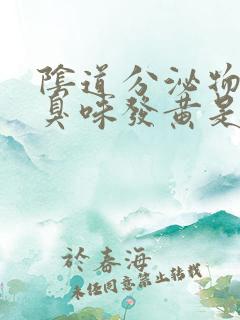 陰道分泌物
臭味發黃是
於春海
未經同意禁止转載